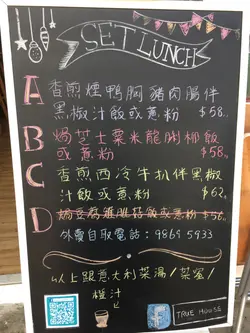 SET LUNCH
A 香煎煙鴨胸豬肉腸伴
黑椒汁飯或意粉 $58.
B 焗芝士粟米龍脷柳飯
或意粉 $58.
C 香煎西冷牛扒伴黑椒
汁飯或意粉 $62.
D 焗豆腐雜眼菇飯或意粉 $56.
外賣自取電話：9869 5933
以上跟意大利菜湯/菜蜜/
橙汁
TRUE HOUSE